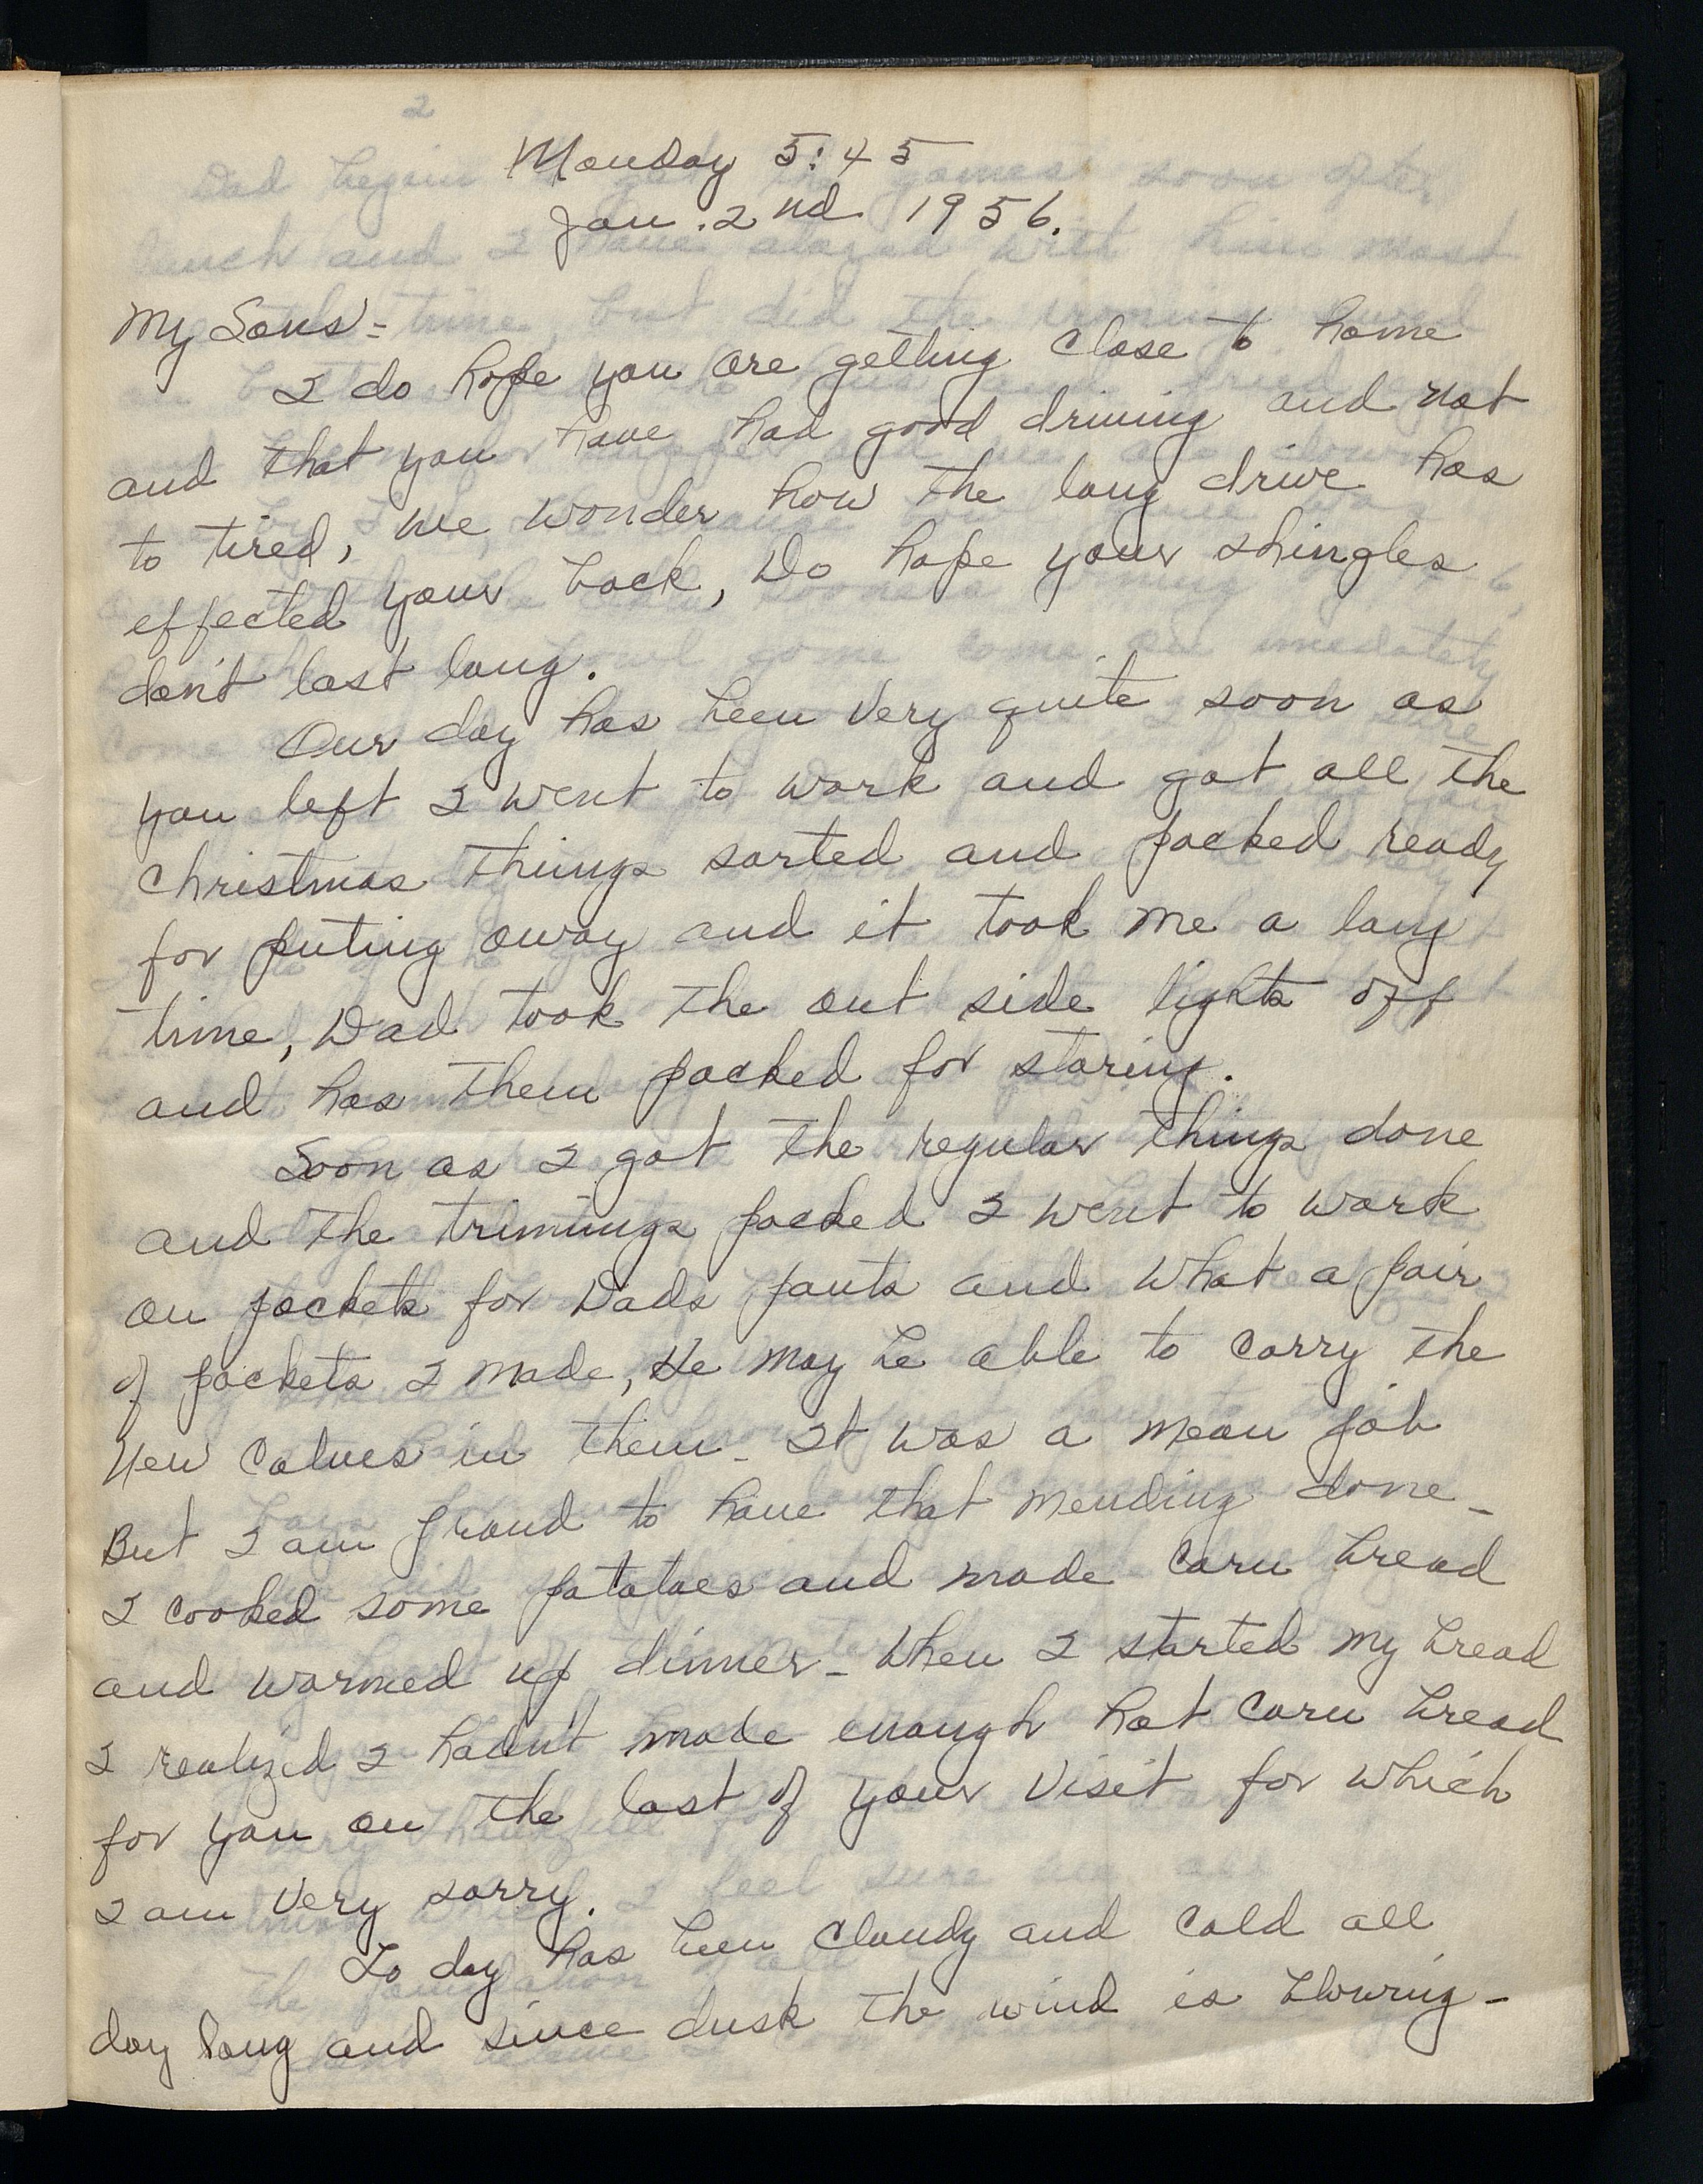 Monday 5:45
Jan. 2nd 1956.
My Sons=
I do hope you are getting close to home
and that you have had good driving and not
to tired, we wonder how the long drive has
effected your back, Do hope your shingles
don't last long.
Our day has been very quite soon as
you left I went to work and got all the
Christmas things sorted and packed ready
for puting away and it took me a long
time, Dad took the out side lights off
and has them packed for storing.
Soon as I got the regular things done
and the trimings packed I went to work
on pockets for Dads pants and what a pair
of pockets I made, He may be able to carry the
new calves in them - It was a mean job
But I am proud to have that mending done -
I cooked some potatoes and made corn bread
and warmed up dinner - When I started my bread
I realized I hadn't made enough hot corn bread
for you on the last of your visit for which
I am very sorry.
To day has been cloudy and cold all
day long and since dusk the wind is blowing -